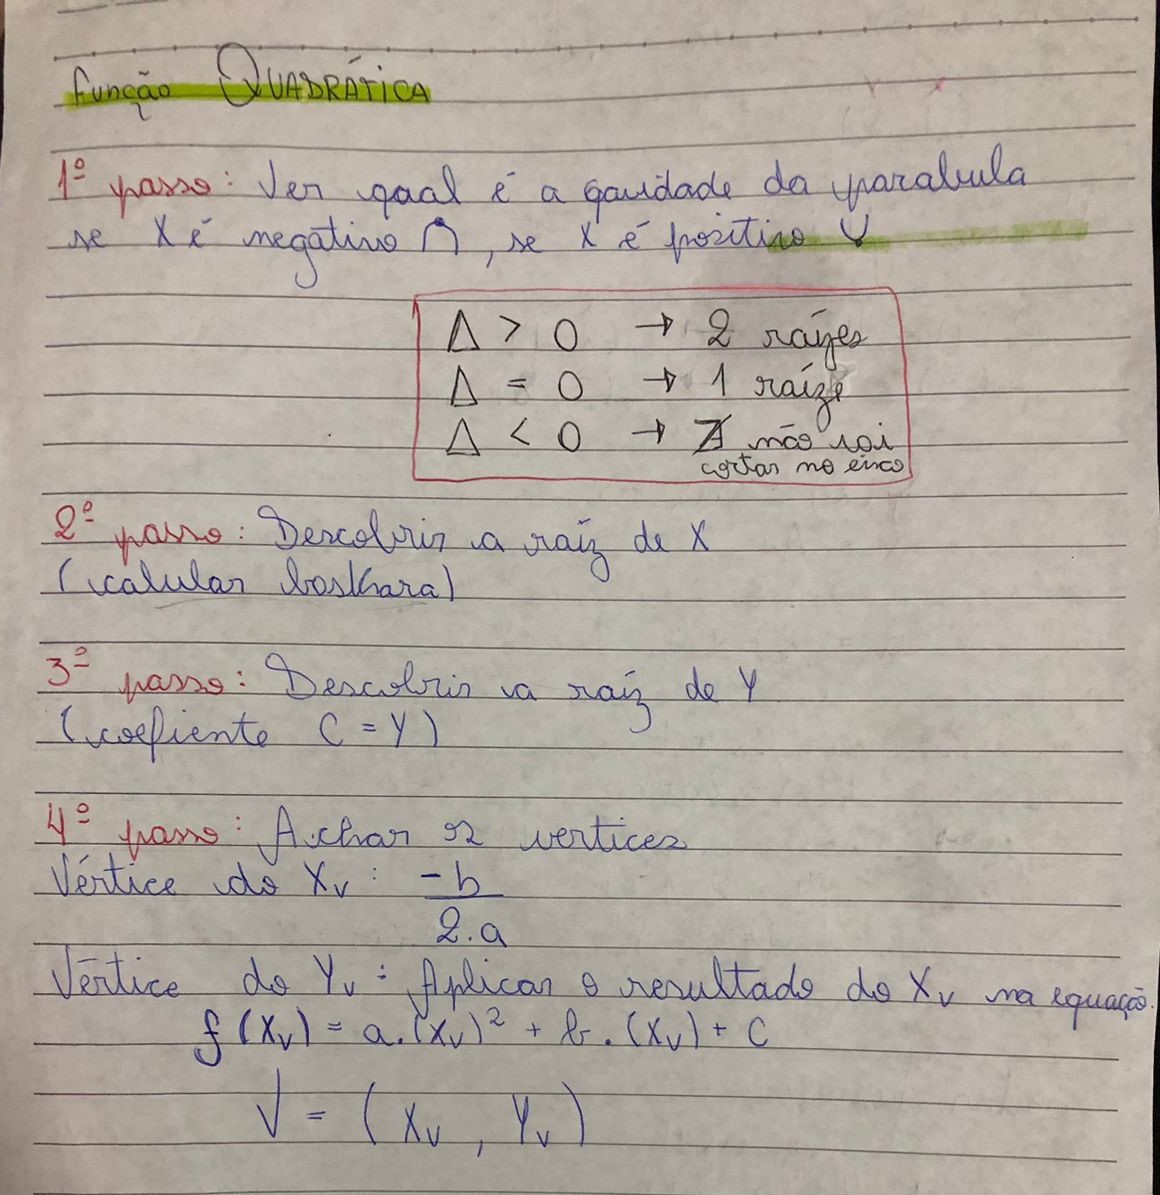 Função QUADRÁTICA
1º passo: Ver qaal é a gavidade da parabula
se X é negativo ∩, se X é positivo ∪
Δ > 0 → 2 raízes
Δ = 0 → 1 raíze
Δ < 0 → ∄ não vai
cortar no eixo
2º passo: Descobrir a raíz de X
(calular baskhara)
3º passo: Descobrir a raíz de Y
(coefiente C = Y)
4º passo: Achar os vertices
Vértice do Xv: -b
2.a
Vértice do Yv: Aplicar o resultado do Xv na equação.
f(Xv) = a.(Xv)² + b.(Xv) + C
V = (Xv, Yv)